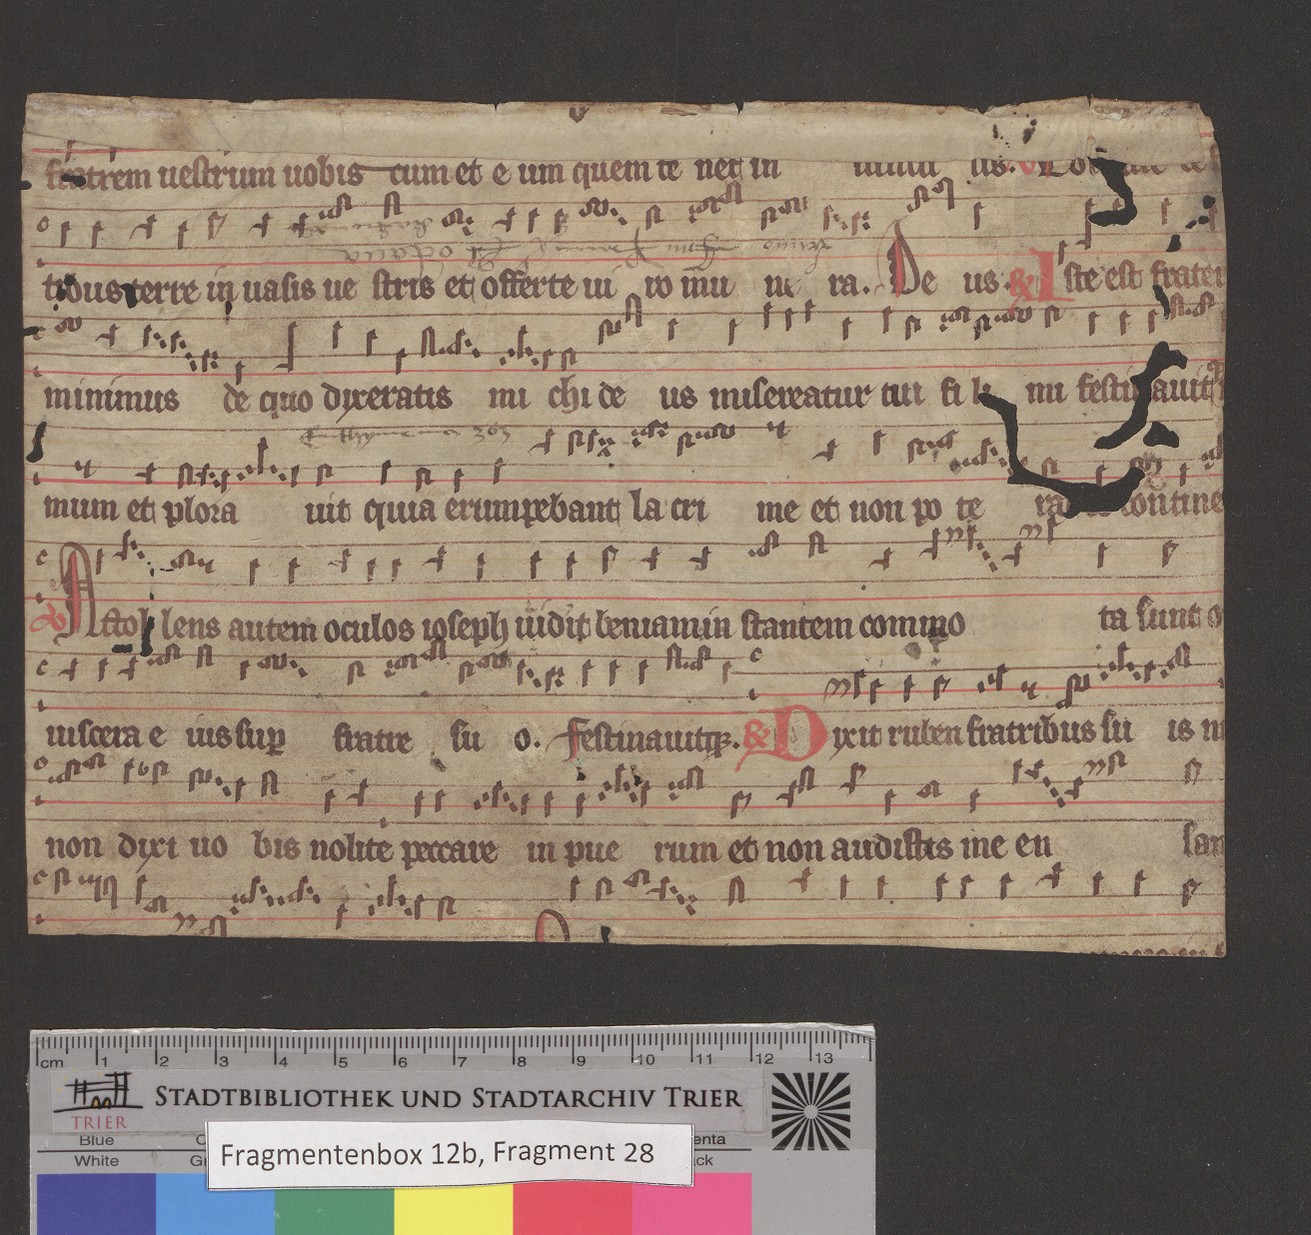 fratrem uestrum uobis cum et e um quem te net in uincul us. V
tibus terre in uasis ue stris et offerte ui ro mu ne ra. De us. & Iste est frater
minimus de quo dixeratis mi chi de us misereatur tui fi li mi festinauitq
Enthymema 303
mum et plora uit quia erumpebant la cri me et non po te ra contine
Attol lens autem oculos ioseph uidit beniamin stantem commo ta sunt o
uiscera e ius sup fratre su o. Festinauitq. & Dixit ruben fratribus su is n
non dixi uo bis nolite peccare in pue rum et non audistis me en san
cm 1 2 3 4 5 6 7 8 9 10 11 12 13
TRIER
STADTBIBLIOTHEK UND STADTARCHIV TRIER
Blue
White
Fragmentenbox 12b, Fragment 28